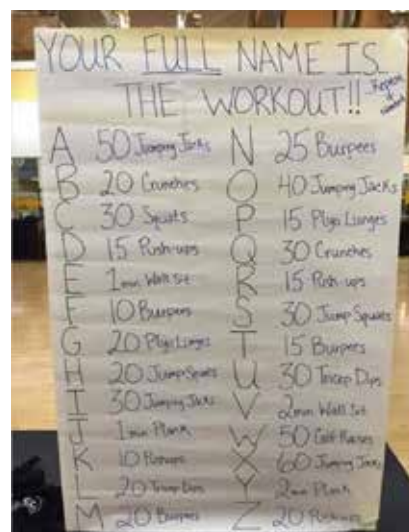 YOUR FULL NAME IS
THE WORKOUT!!
Repeat
A 50 Jumping Jacks
B 20 Crunches
C 30 Squats
D 15 Push-ups
E 1 min Wall Sit
F 10 Burpees
G 20 Plyo Lunges
H 20 Jump Squats
I 30 Jumping Jacks
J 1 min Plank
K 10 Pushups
L 20 Tricep Dips
M 20 Burpees
N 25 Burpees
O 40 Jumping Jacks
P 15 Plyo Lunges
Q 30 Crunches
R 15 Push-ups
S 30 Jump Squats
T 15 Burpees
U 30 Tricep Dips
V 2 min Wall Sit
W 50 Calf Raises
X 60 Jumping Jacks
Y 2 min Plank
Z 20 Push-ups